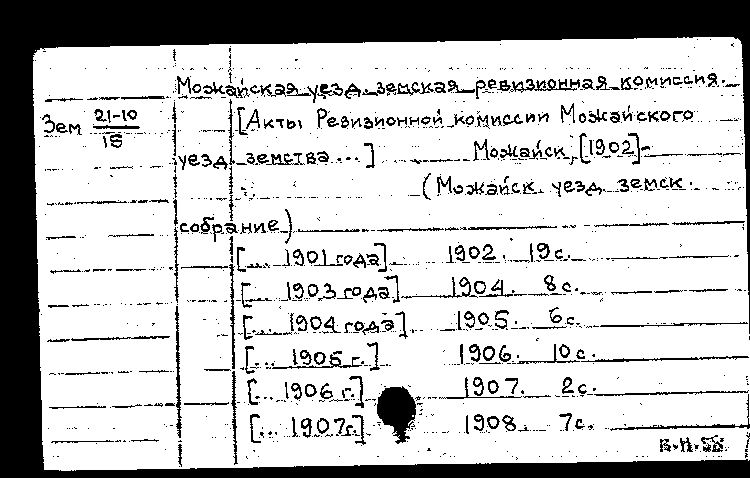 Можайская уезд. земская ревизионная комиссия.
Зем 21-10/15 [Акты Ревизионной комиссии Можайского
уезд. земства...] Можайск, [1902]-
(Можайск. уезд. земск.
собрание)
[... 1901 года]. 1902. 19 с.
[... 1903 года] 1904. 8 с.
[... 1904 года] 1905. 6 с.
[... 1905 г.] 1906. 10 с.
[... 1906 г.] 1907. 2 с.
[... 1907 г.] 1908. 7 с.